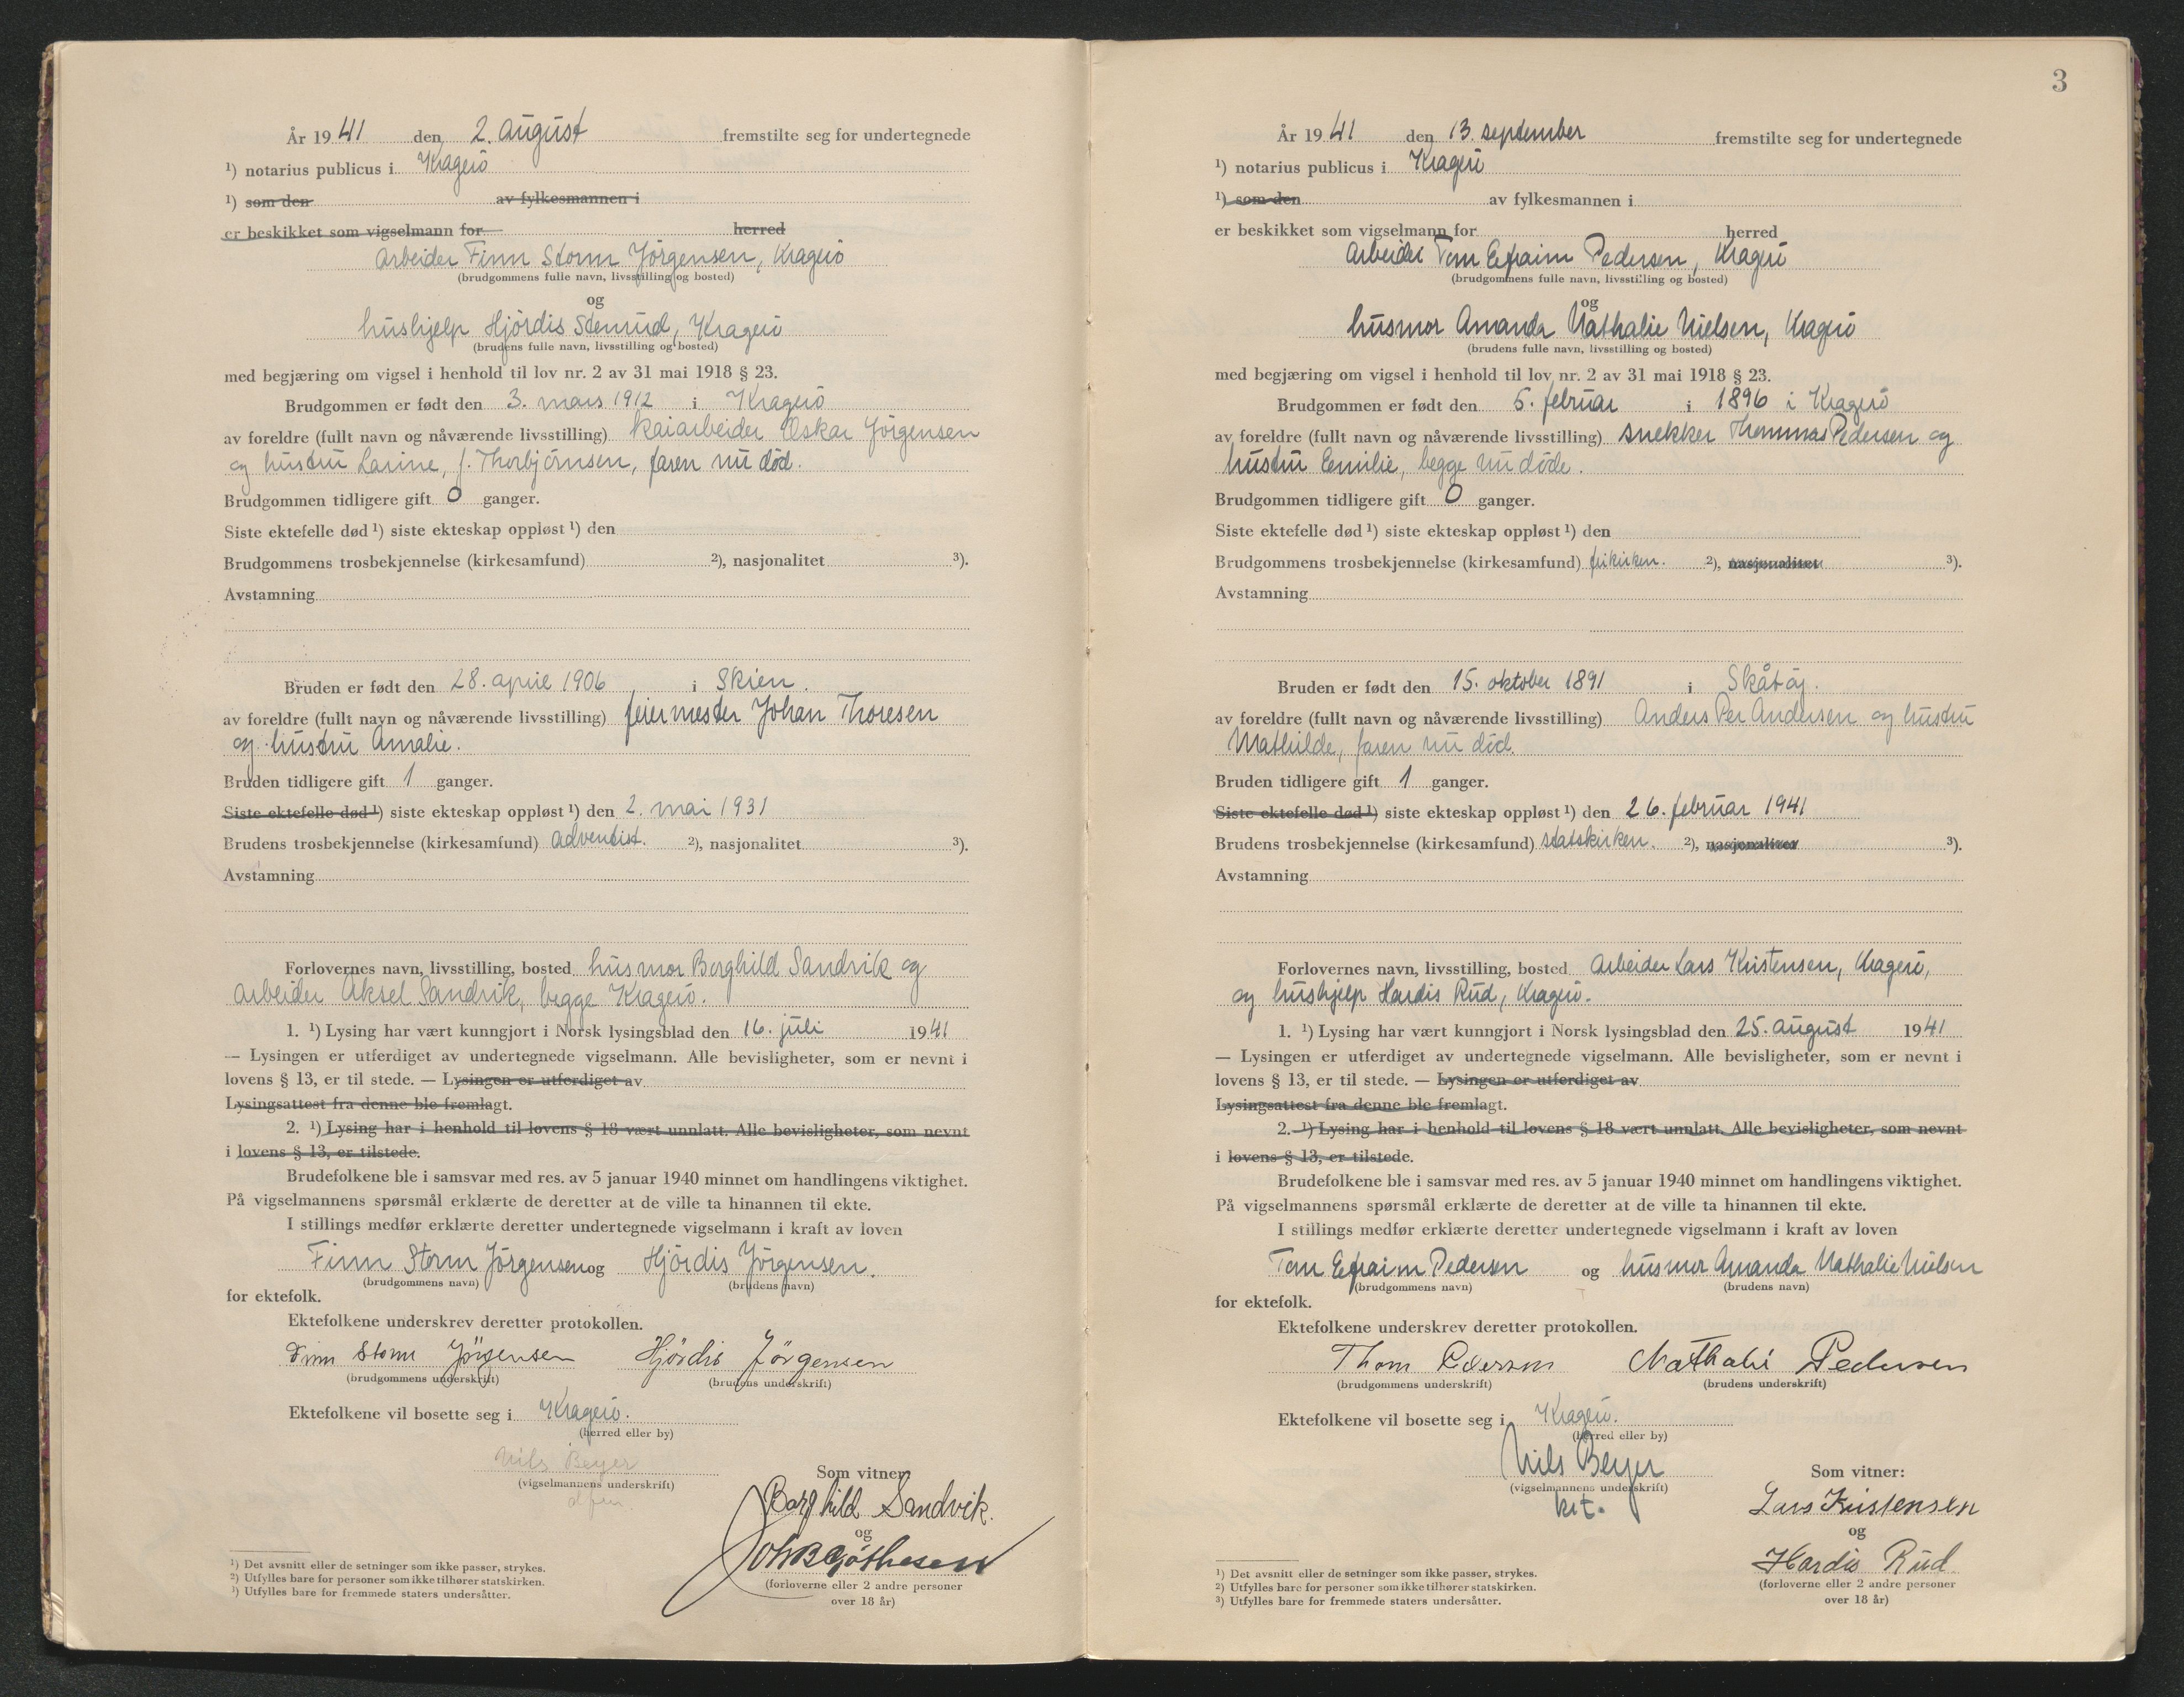 År 1941 den 2. august fremstilte seg for undertegnede
¹) notarius publicus i Kragerö
¹) som den av fylkesmannen i
er beskikket som vigselmann for herred
arbeider Finn Storm Jörgensen, Kragerö
(brudgommens fulle navn, livsstilling og bosted)
og
hushjelp Hjördis Stenrud, Kragerö
(brudens fulle navn, livsstilling og bosted)
med begjæring om vigsel i henhold til lov nr. 2 av 31 mai 1918 § 23.
Brudgommen er født den 3. mars 1912 i Kragerö
av foreldre (fullt navn og nåværende livsstilling) kaiarbeider Oskar Jörgensen
og hustru Larine, f. Thorbjörnsen, faren nu död.
Brudgommen tidligere gift 0 ganger.
Siste ektefelle død ¹) siste ekteskap oppløst ¹) den
Brudgommens trosbekjennelse (kirkesamfund) ²), nasjonalitet ³).
Avstamning
Bruden er født den 28. april 1906 i Skien.
av foreldre (fullt navn og nåværende livsstilling) feiermester Johan Thoresen
og hustru Amalie.
Bruden tidligere gift 1 ganger.
Siste ektefelle død ¹) siste ekteskap oppløst ¹) den 2. mai 1931
Brudens trosbekjennelse (kirkesamfund) adventist. ²), nasjonalitet ³).
Avstamning
Forlovernes navn, livsstilling, bosted husmor Borghild Sandvik og
arbeider Aksel Sandvik, begge Kragerö.
1. ¹) Lysing har vært kunngjort i Norsk lysingsblad den 16. juli 1941
— Lysingen er utferdiget av undertegnede vigselmann. Alle bevisligheter, som er nevnt i
lovens § 13, er til stede. — Lysingen er utferdiget av
Lysingsattest fra denne ble fremlagt.
2. ¹) Lysing har i henhold til lovens § 18 vært unnlatt. Alle bevisligheter, som nevnt
i lovens § 13, er tilstede.
Brudefolkene ble i samsvar med res. av 5 januar 1940 minnet om handlingens viktighet.
På vigselmannens spørsmål erklærte de deretter at de ville ta hinannen til ekte.
I stillings medfør erklærte deretter undertegnede vigselmann i kraft av loven
Finn Storm Jörgensen og Hjördis Jörgensen.
(brudgommens navn) (brudens navn)
for ektefolk.
Ektefolkene underskrev deretter protokollen.
Finn Storm Jörgensen Hjördis Jörgensen
(brudgommens underskrift) (brudens underskrift)
Ektefolkene vil bosette seg i Kragerö.
(herred eller by)
Nils Beyer
(vigselmannens underskrift)
Som vitner:
Borghild Sandvik.
og
(forloverne eller 2 andre personer
over 18 år)
¹) Det avsnitt eller de setninger som ikke passer, strykes.
²) Utfylles bare for personer som ikke tilhører statskirken.
³) Utfylles bare for fremmede staters undersåtter.
3
År 1941 den 13. september fremstilte seg for undertegnede
¹) notarius publicus i Kragerö
¹) som den av fylkesmannen i
er beskikket som vigselmann for herred
arbeider Tom Efraim Pedersen, Kragerö
(brudgommens fulle navn, livsstilling og bosted)
og
husmor Amanda Nathalie Nielsen, Kragerö
(brudens fulle navn, livsstilling og bosted)
med begjæring om vigsel i henhold til lov nr. 2 av 31 mai 1918 § 23.
Brudgommen er født den 5. februar i 1896 i Kragerö
av foreldre (fullt navn og nåværende livsstilling) snekker Thommas Pedersen og
hustru Emilie, begge nu döde.
Brudgommen tidligere gift 0 ganger.
Siste ektefelle død ¹) siste ekteskap oppløst ¹) den
Brudgommens trosbekjennelse (kirkesamfund) frikirken. ²), nasjonalitet ³).
Avstamning
Bruden er født den 15. oktober 1891 i Skåtöy.
av foreldre (fullt navn og nåværende livsstilling) Anders Per Andersen og hustru
Mathilde, faren nu död.
Bruden tidligere gift 1 ganger.
Siste ektefelle død ¹) siste ekteskap oppløst ¹) den 26. februar 1941
Brudens trosbekjennelse (kirkesamfund) statskirken. ²), nasjonalitet ³).
Avstamning
Forlovernes navn, livsstilling, bosted arbeider Lars Kristensen, Kragerö,
og hushjelp Hardis Rud, Kragerö.
1. ¹) Lysing har vært kunngjort i Norsk lysingsblad den 25. august 1941
— Lysingen er utferdiget av undertegnede vigselmann. Alle bevisligheter, som er nevnt i
lovens § 13, er til stede. — Lysingen er utferdiget av
Lysingsattest fra denne ble fremlagt.
2. ¹) Lysing har i henhold til lovens § 18 vært unnlatt. Alle bevisligheter, som nevnt
i lovens § 13, er tilstede.
Brudefolkene ble i samsvar med res. av 5 januar 1940 minnet om handlingens viktighet.
På vigselmannens spørsmål erklærte de deretter at de ville ta hinannen til ekte.
I stillings medfør erklærte deretter undertegnede vigselmann i kraft av loven
Tom Efraim Pedersen og husmor Amanda Nathalie Nielsen
(brudgommens navn) (brudens navn)
for ektefolk.
Ektefolkene underskrev deretter protokollen.
Thom Pedersen Nathalie Pedersen
(brudgommens underskrift) (brudens underskrift)
Ektefolkene vil bosette seg i Kragerö.
(herred eller by)
Nils Beyer
(vigselmannens underskrift)
kst.
Som vitner:
Lars Kristensen
og
Hardis Rud
(forloverne eller 2 andre personer
over 18 år)
¹) Det avsnitt eller de setninger som ikke passer, strykes.
²) Utfylles bare for personer som ikke tilhører statskirken.
³) Utfylles bare for fremmede staters undersåtter.